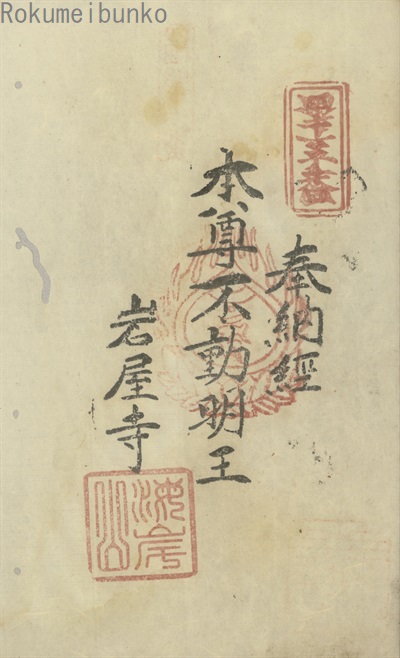 Rokumeibunko
四十五番
奉納經
本尊不動明王
岩屋寺
海岸山